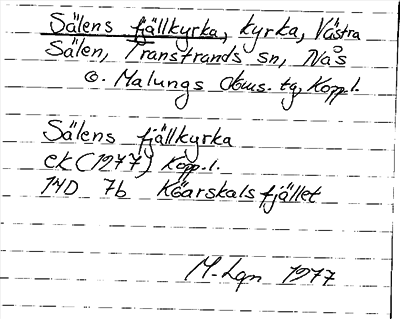 Sälens fjällkyrka, kyrka, Västra
Sälen, Transtrands sn, Nås
o. Malungs doms. tg, Koppl.
Sälens fjällkyrka
ek (1277) Koppl.
14D 7b Köarskalsfjället
M-Lgn 1977